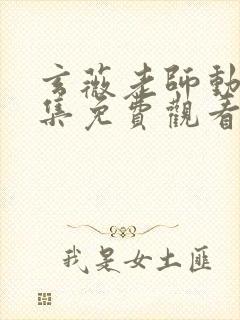 玄薇老師動
集免費觀看
我是女土匪